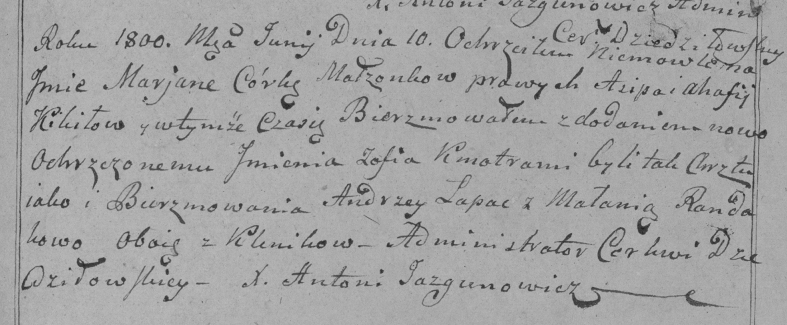 X. Antoni Jazgunowicz Admin
Cer. Dziedziłowskey
Roku 1800. Mca Junij Dnia 10. Ochrzciłem Niemowlę na
Jmie Marjane Córkę Małzonkow prawych Asipa i Ahafij
Kikiłow y wtymże Czasie Bierzmowałem z dodaniem nowo
Ochrzczonemu Jmienia Zofia Kmotrami byli tak Chrztu
iako i Bierzmowania Andrzey Łapac z Małanią Randa
kowo Oboie z Klenikow – Administrator Cerkwi Dzie
dziłowskiey – X. Antoni Jazgunowicz